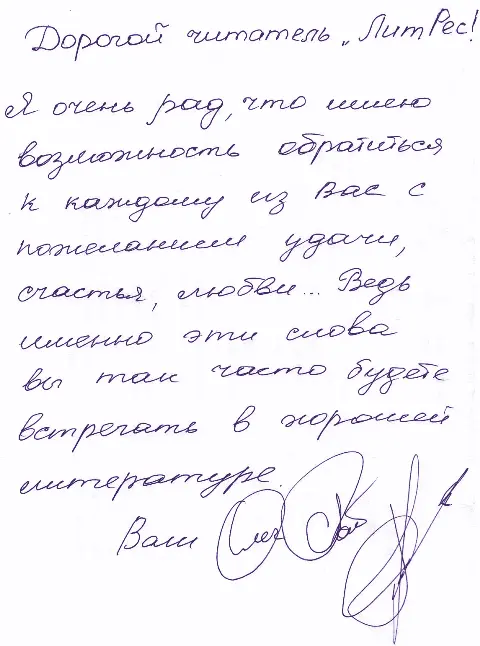 Дорогой читатель „ЛитРес!
Я очень рад, что имею
возможность обратиться
к каждому из Вас с
пожеланием удачи,
счастья, любви... Ведь
именно эти слова
вы так часто будете
встречать в хорошей
литературе.
Ваш